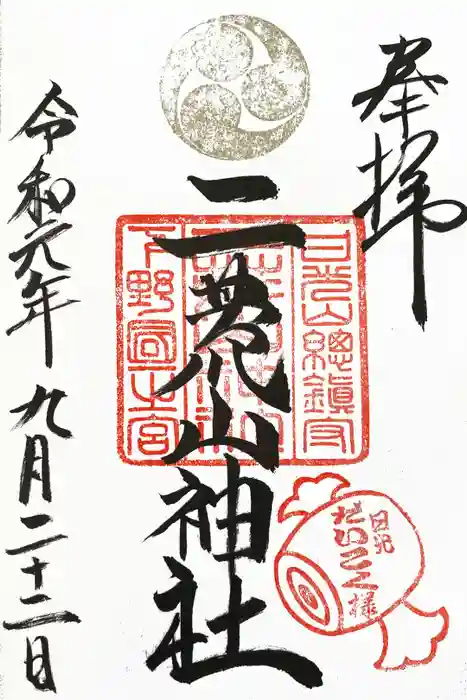 奉拝
日光山總鎮守
二荒山神社
下野國一之宮
日光
だいこく様
令和元年九月二十二日